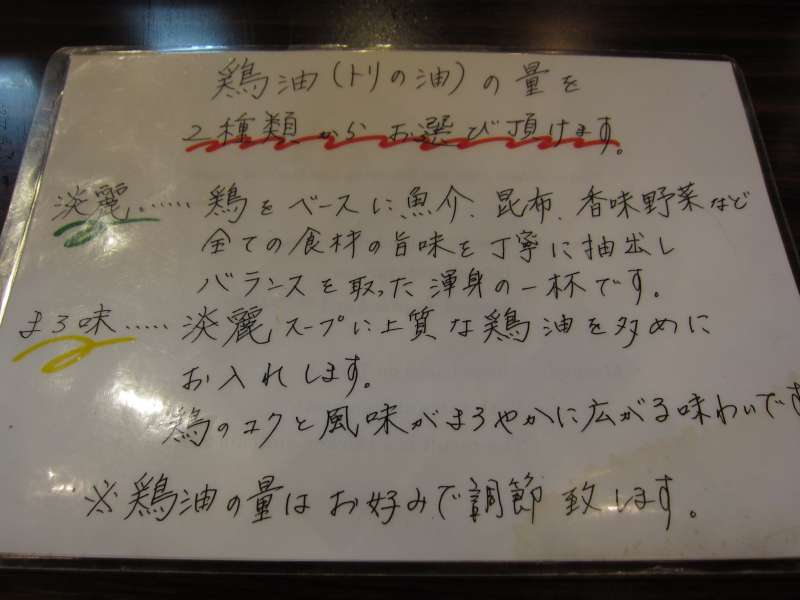 鶏油(トリの油)の量を
2種類からお選び頂けます。
淡麗……鶏をベースに魚介、昆布、香味野菜など
全ての食材の旨味を丁寧に抽出し
バランスを取った渾身の一杯です。
まろ味……淡麗スープに上質な鶏油を多めに
お入れします。
鶏のコクと風味がまろやかに広がる味わいです
※鶏油の量はお好みで調節致します。